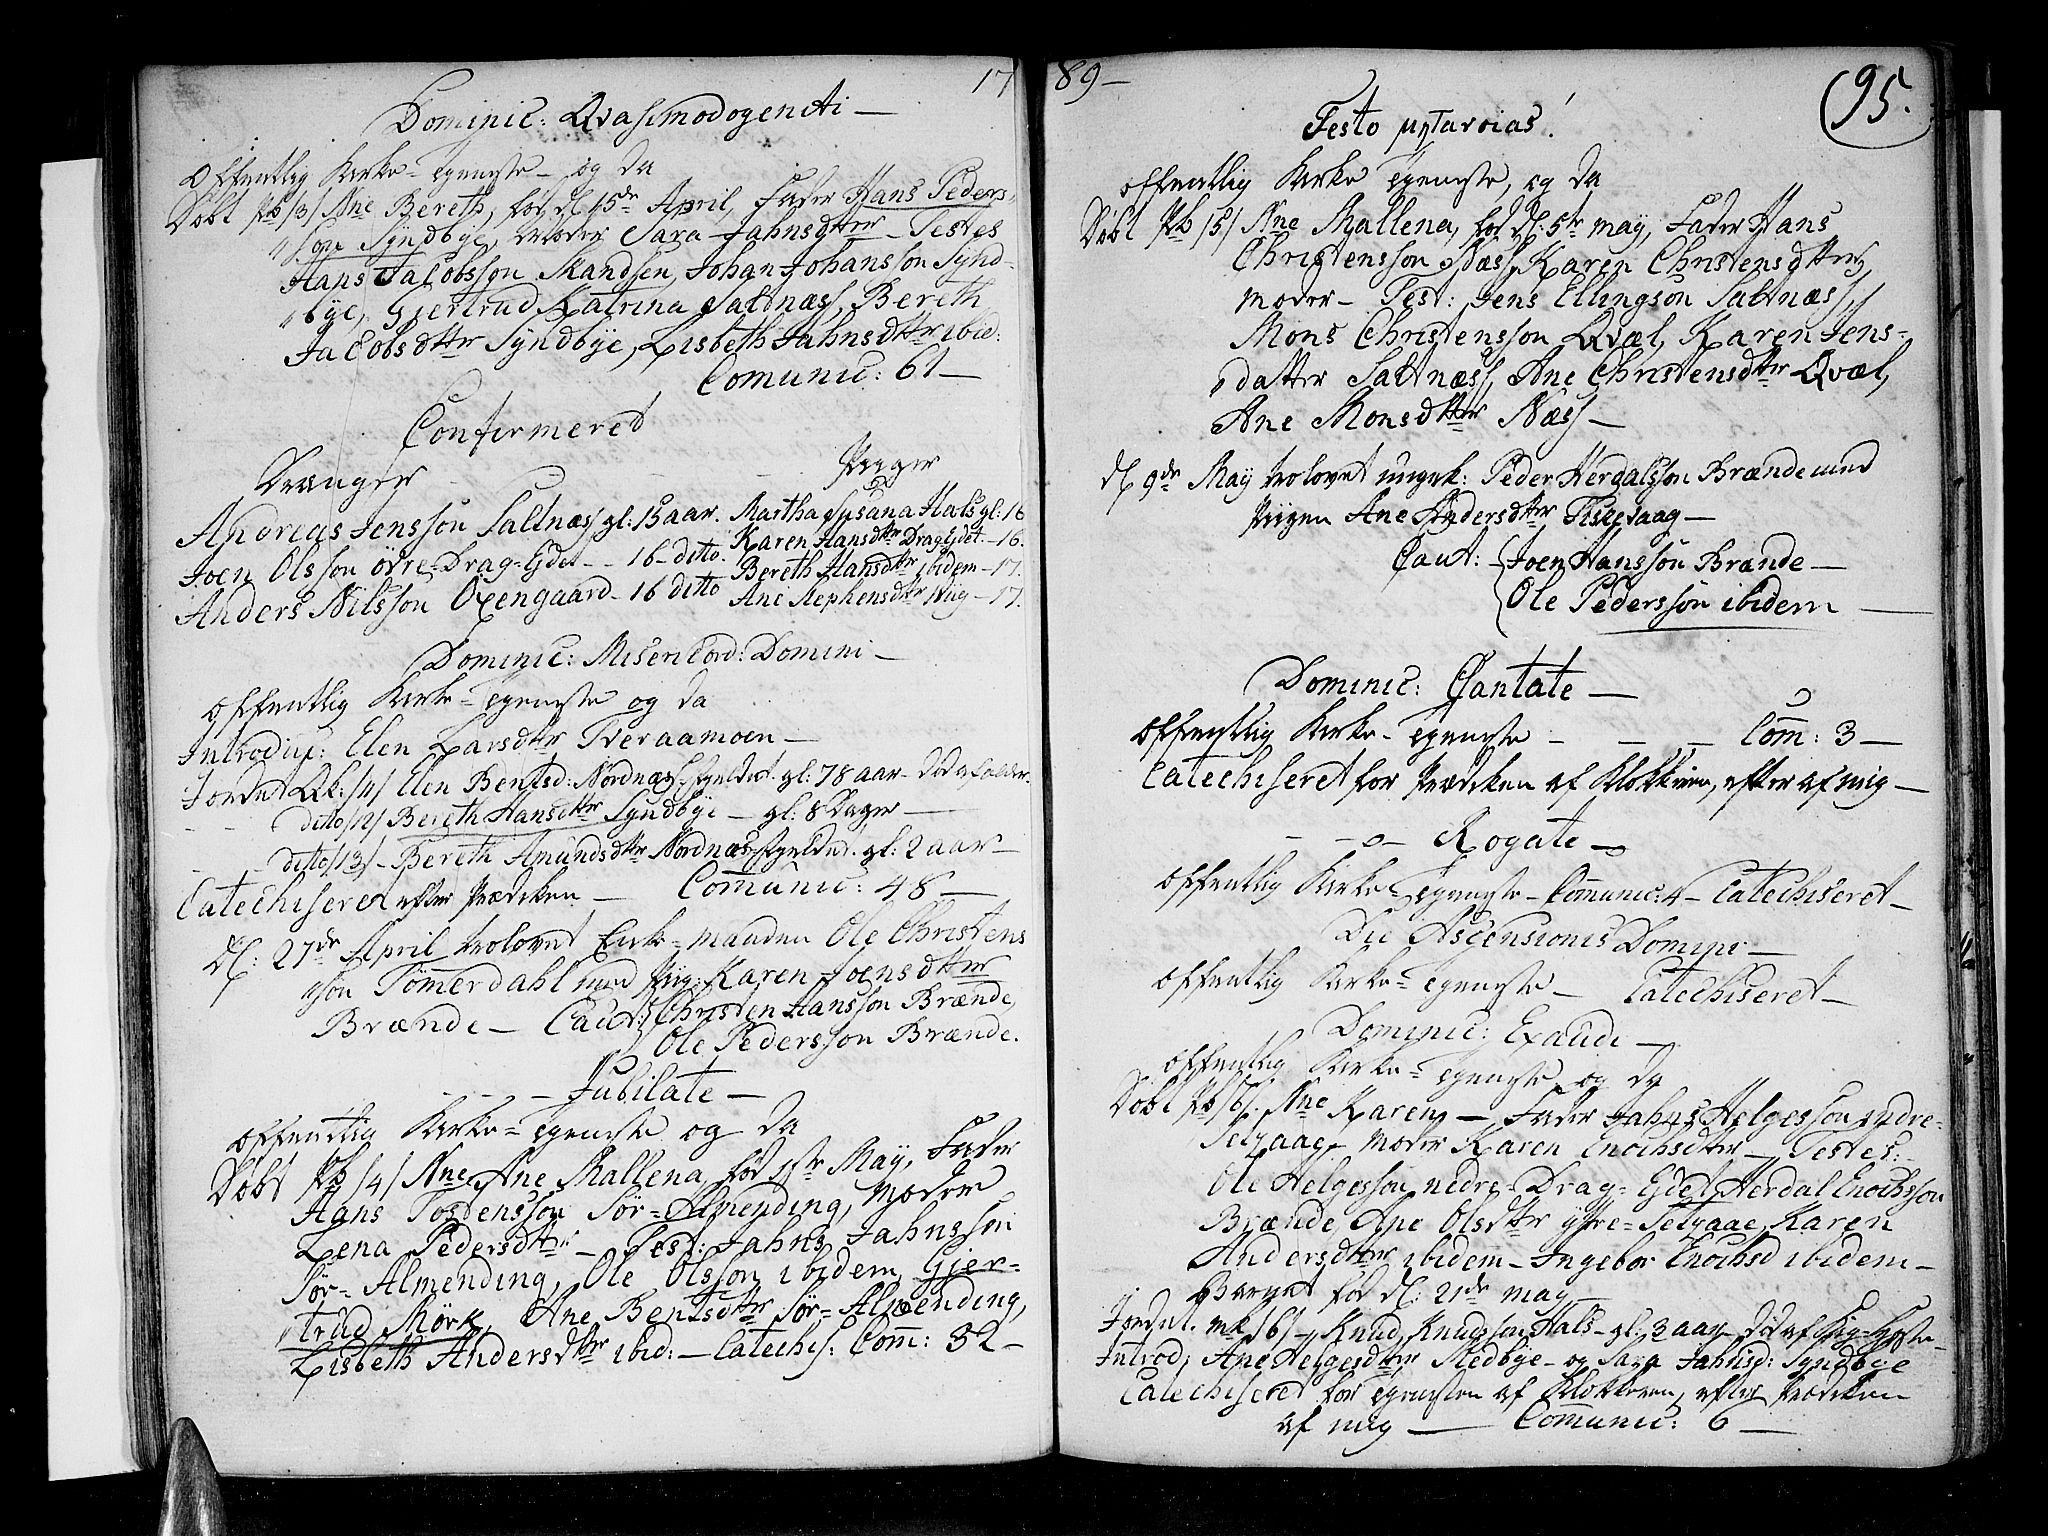 17
Dominic: Qvasimodogeniti —
Offentlig Kirke-Tieneste — og da
Døbt Pb /3/ Nne Bereth, fød d/ 15de April, Fader Hans Peders-
son Syndbye, Moder Sara Jahnsdtter — Testes
Hans Jacobsson Mandsen, Johan Johansson Synd-
bye, Gjertrud Katrina Saltnæss, Bereth
Jacobsdtter Syndbye, Lisbeth Jahnsdtter ibid:
Comunic: 61 —
Confirmered
Drænger — Piiger
Andreas Jensson Saltnæss gl: 15 aar. Martha Susana Hals gl: 16
Joen Olsson övre-Drag-Ejdet — 16 ditto. Karen Hansdtter DragEjdet. — 16.
Anders Nilsson Oxengaard — 16 ditto Bereth Hansdtter ibidem — 17.
Ane Stephensdtter Hug — 17.
Dominic: Misericord: Domini —
Offentlig Kirke-Tieneste og da
Introduc: Elen Larsdtter Tveraamoen —
Jordet Qk: /1/ Elen Bentsd: Nordnæs-Fjeldet. gl: 78 aar — død af alder.
— — ditto /2/ Bereth Hansdtter Syndbye — gl: 8 Dager —
— — ditto /3/ — Bereth Amundsdtter Nordnæs-Fjeldet. gl: 2 aar —
Catechiseret efter Prædiken — Comunic: 48 —
d/: 27de April trolovet Enke-manden Ole Christens
son Tömmerdahl med Pig: Karen Joensdtter
Brænde — Caut: Christen Hansson Brænde,
Ole Pedersson Brænde.
— — — Jubilate —
Offentlig Kirke-Tieneste og da
Døbt Pb /4/ Nne Ane Mallena, fød 1ste May, Fader
Hans Tostensson Sör-Almending, Moder
Lena Pedersdtter — Test: Jahns Jahnsson
Sör-Almending, Ole Olsson ibidem, Gjer-
trud Mörk, Ane Bentsdtter Sör-Almending,
Lisbeth Andersdtter ibid: — Catechis: Com: 32 —
89 —
95.
Festo
Offentlig Kirke Tieneste, og da
Døbt Pb /5/ Nne Mallena, fød d/: 5te may, Fader Hans
Christensson Næss, Karen Christensdtter
moder — Test: Jens Ellingson Saltnæss,
Mons Christensson Qvæl, Karen Jens-
datter Saltnæss, Ane Christensdtter Qvæl,
Ane Monsdtter Næss —
d/ 9de May trolovet ungk: Peder Herdalsson Brænde med
Piigen Ane Andersdtter Fiskesaag —
Caut: Joen Hansson Brænde —
Ole Pedersson ibidem —
Dominic: Cantate —
Offentlig Kirke-Tieneste — — — Com: 3 —
Catechiseret for Prædiken af Klokkeren, efter af mig —
— — o — Rogate —
Offentlig Kirke-Tieneste — Comunic: 4 — Catechiseret —
Die Ascensionis Domini —
Offentlig Kirke-Tieneste — Catechiseret —
Dominic: Exaudi —
Offentlig Kirke-Tieneste og da
Døbt Pb /6/. Nne Karen — Fader Jahns Helgesson yndre-
Selgaae — Moder Karen Enochsdtter — Testes:
Ole Helgesson nedre-Drag-Ejdet, Herdal Enochsson
Brænde, Ane Olsdtter ytre-Selgaae, Karen
Andersdtter ibidem — Ingebor Enochsd ibidem —
Barnet fød d/: 21de may —
Jordet. mk /6/ — Knud Knudsson Hals — gl: 3 aar — død af
Introd: Ane Helgesdtter Medbye — og Sara Jahnsd: Syndbye
Catechiseret for Tienesten af Klokkeren, efter Prædiken
af mig — Comunic: 6 —